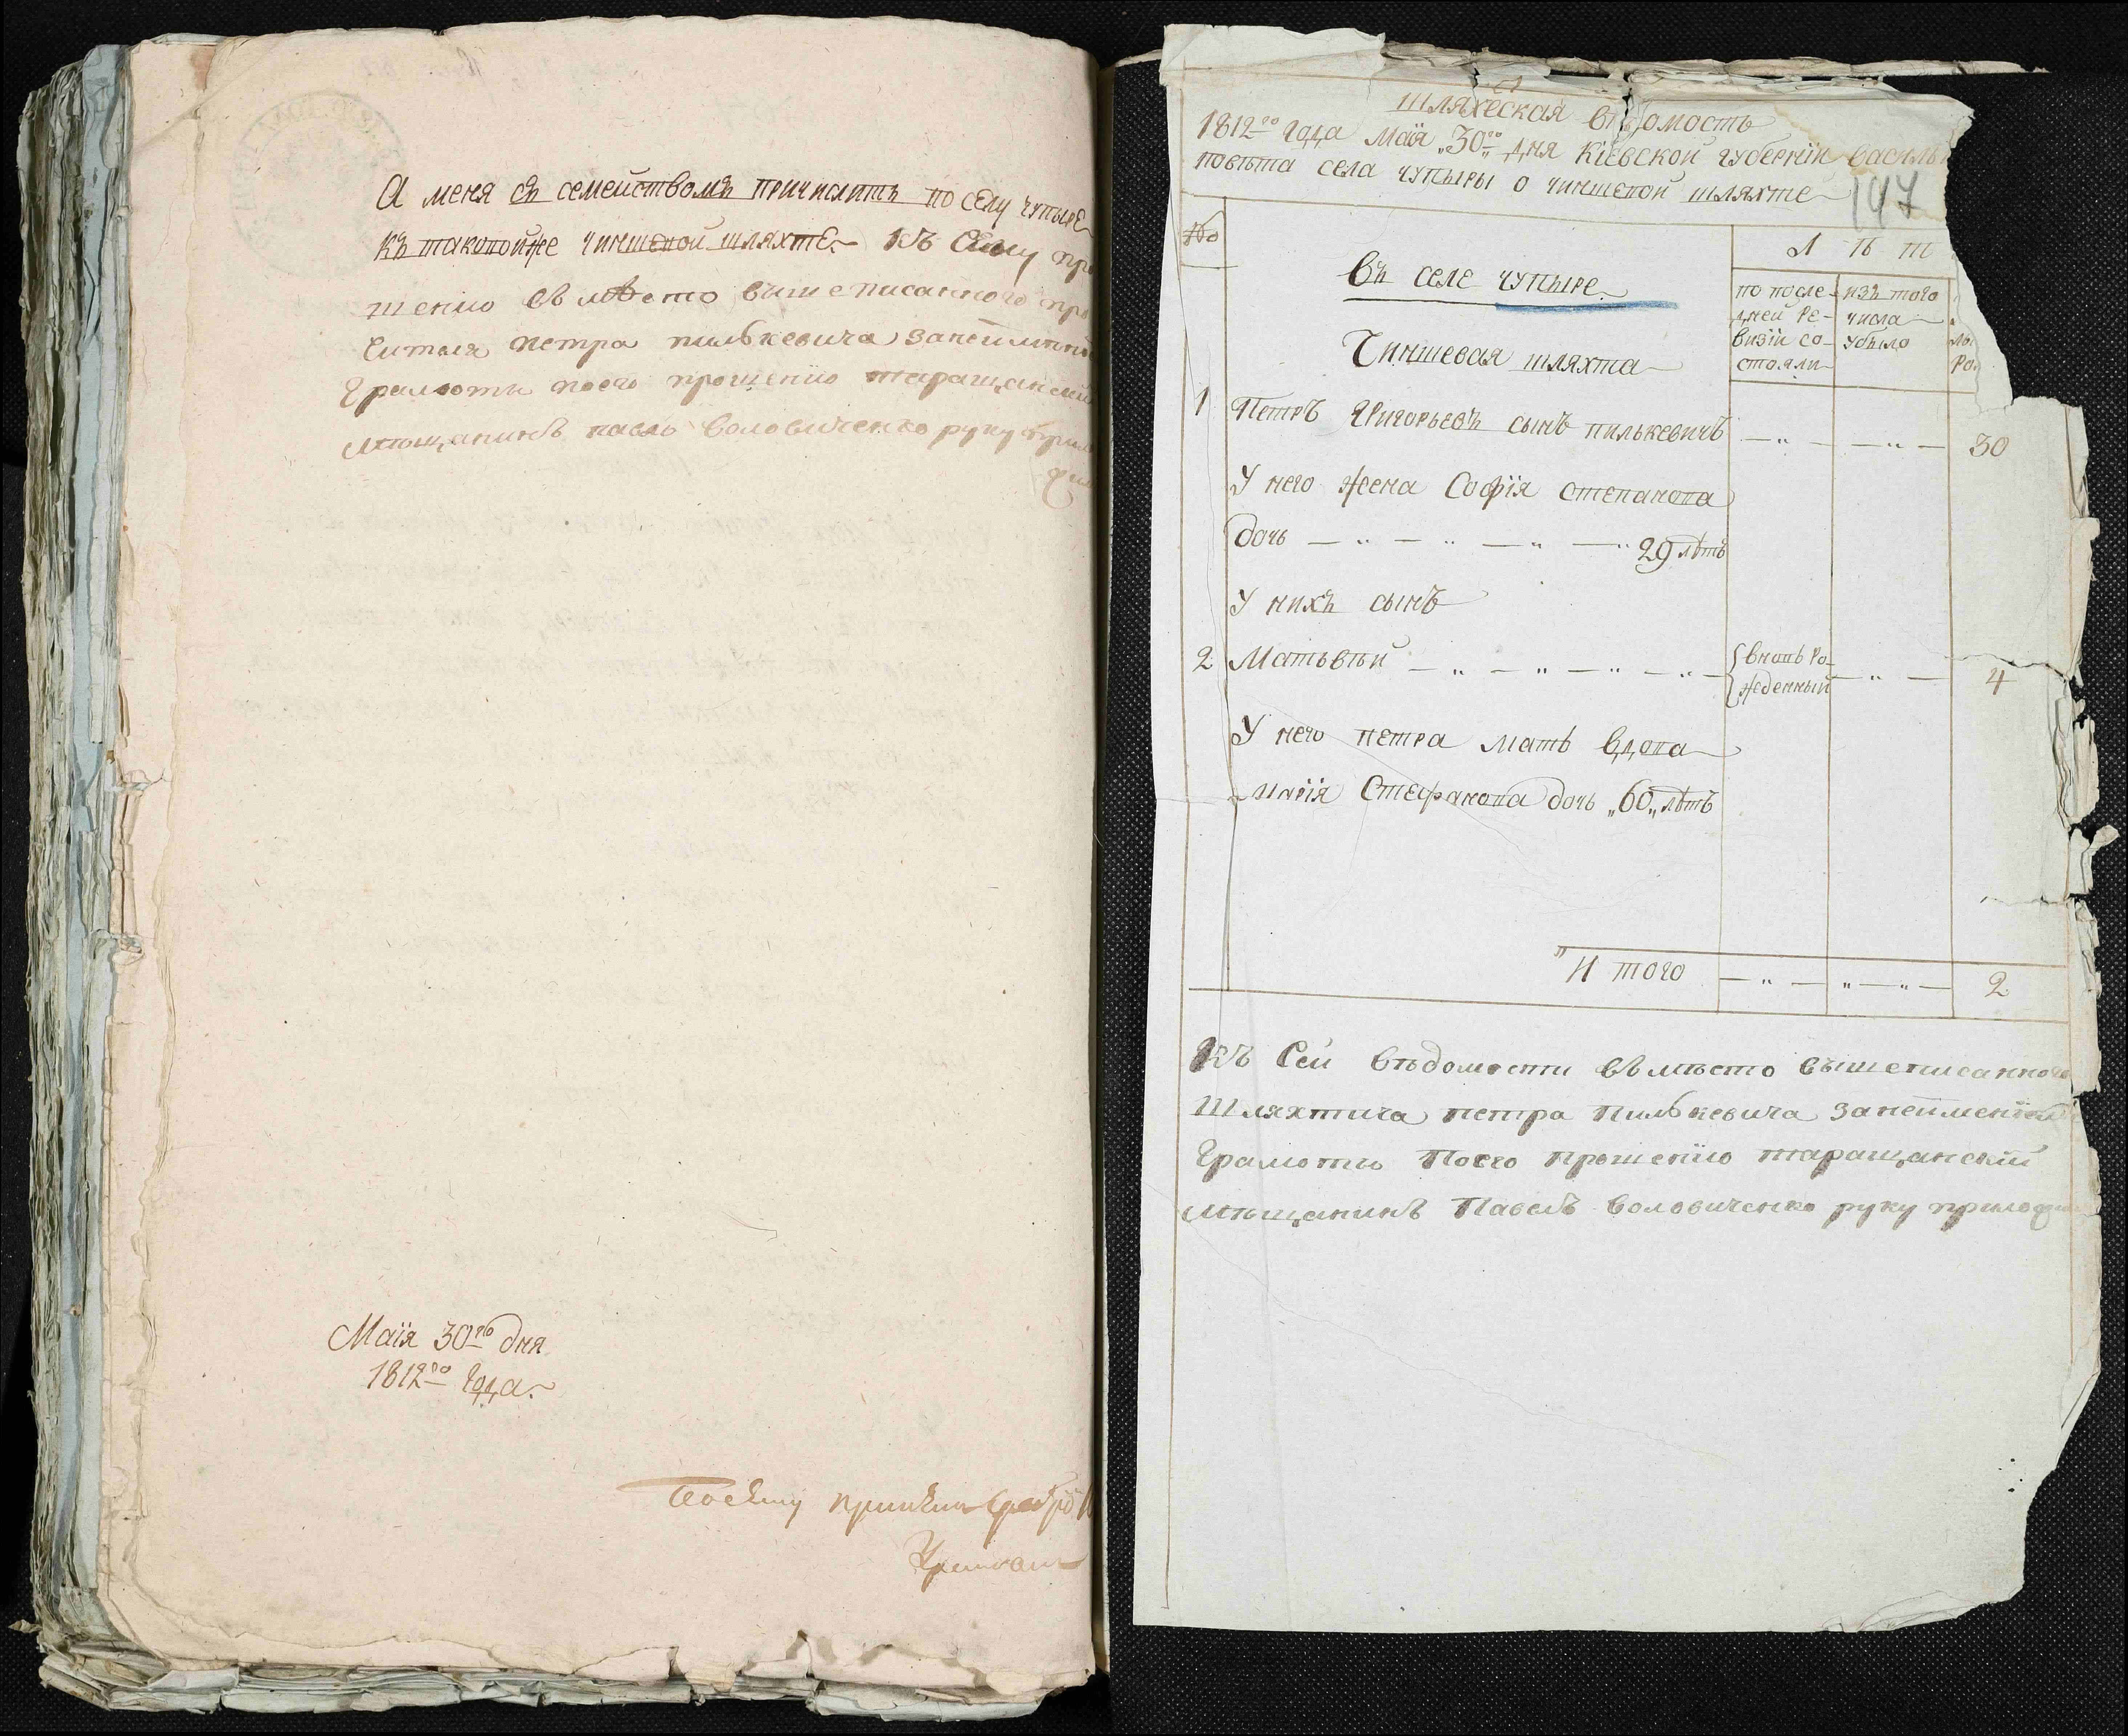 А меня съ семействомъ причислить по селу чупыре
къ таковойже чиншевой шляхте К Сему про
шению вместо вышеписанного про
сителя петра пилькевича занеимени
грамоты поего прошению таращанский
мещанинъ павелъ воловиченко руку прило
жил
Маїя 30го дня
1812го Года.
Шляхеская Вѣдомость
1812го Года Маїя „30го„ дня Кіевской губерніи васильк
повѣта села чупыры о чиншевой шляхте
147
№
Въ селе чупыре
Чиншевая шляхта
Л ѣ т
по после-
дней ре-
визіи со-
стояли
изъ того
числа
убыло
1 Петръ Григорьевъ сынъ пилькевичъ — „ — — „ — 30
У него жена Софїя степанова
дочь — „ — „ — „ — „ 29 лѣтъ
У нихъ сынъ
2 Матьвѣй — „ — „ — „ — „ — вновь ро-
жденный — „ — 4
У него петра мать вдова
марїя Стефанова дочь „60„ лѣтъ
И того — „ — „ — „ — 2
Къ Сей вѣдомости вместо вышеписанного
шляхтича петра пилькевича занеимениемъ
грамоты поего прошению таращанский
мещанинъ Павелъ воловиченко руку приложи